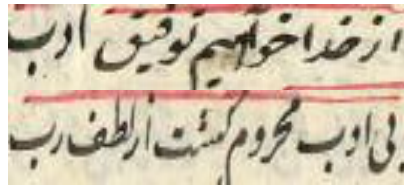 از خدا خواهیم توفیق ادب
بی ادب محروم کشت از لطف رب